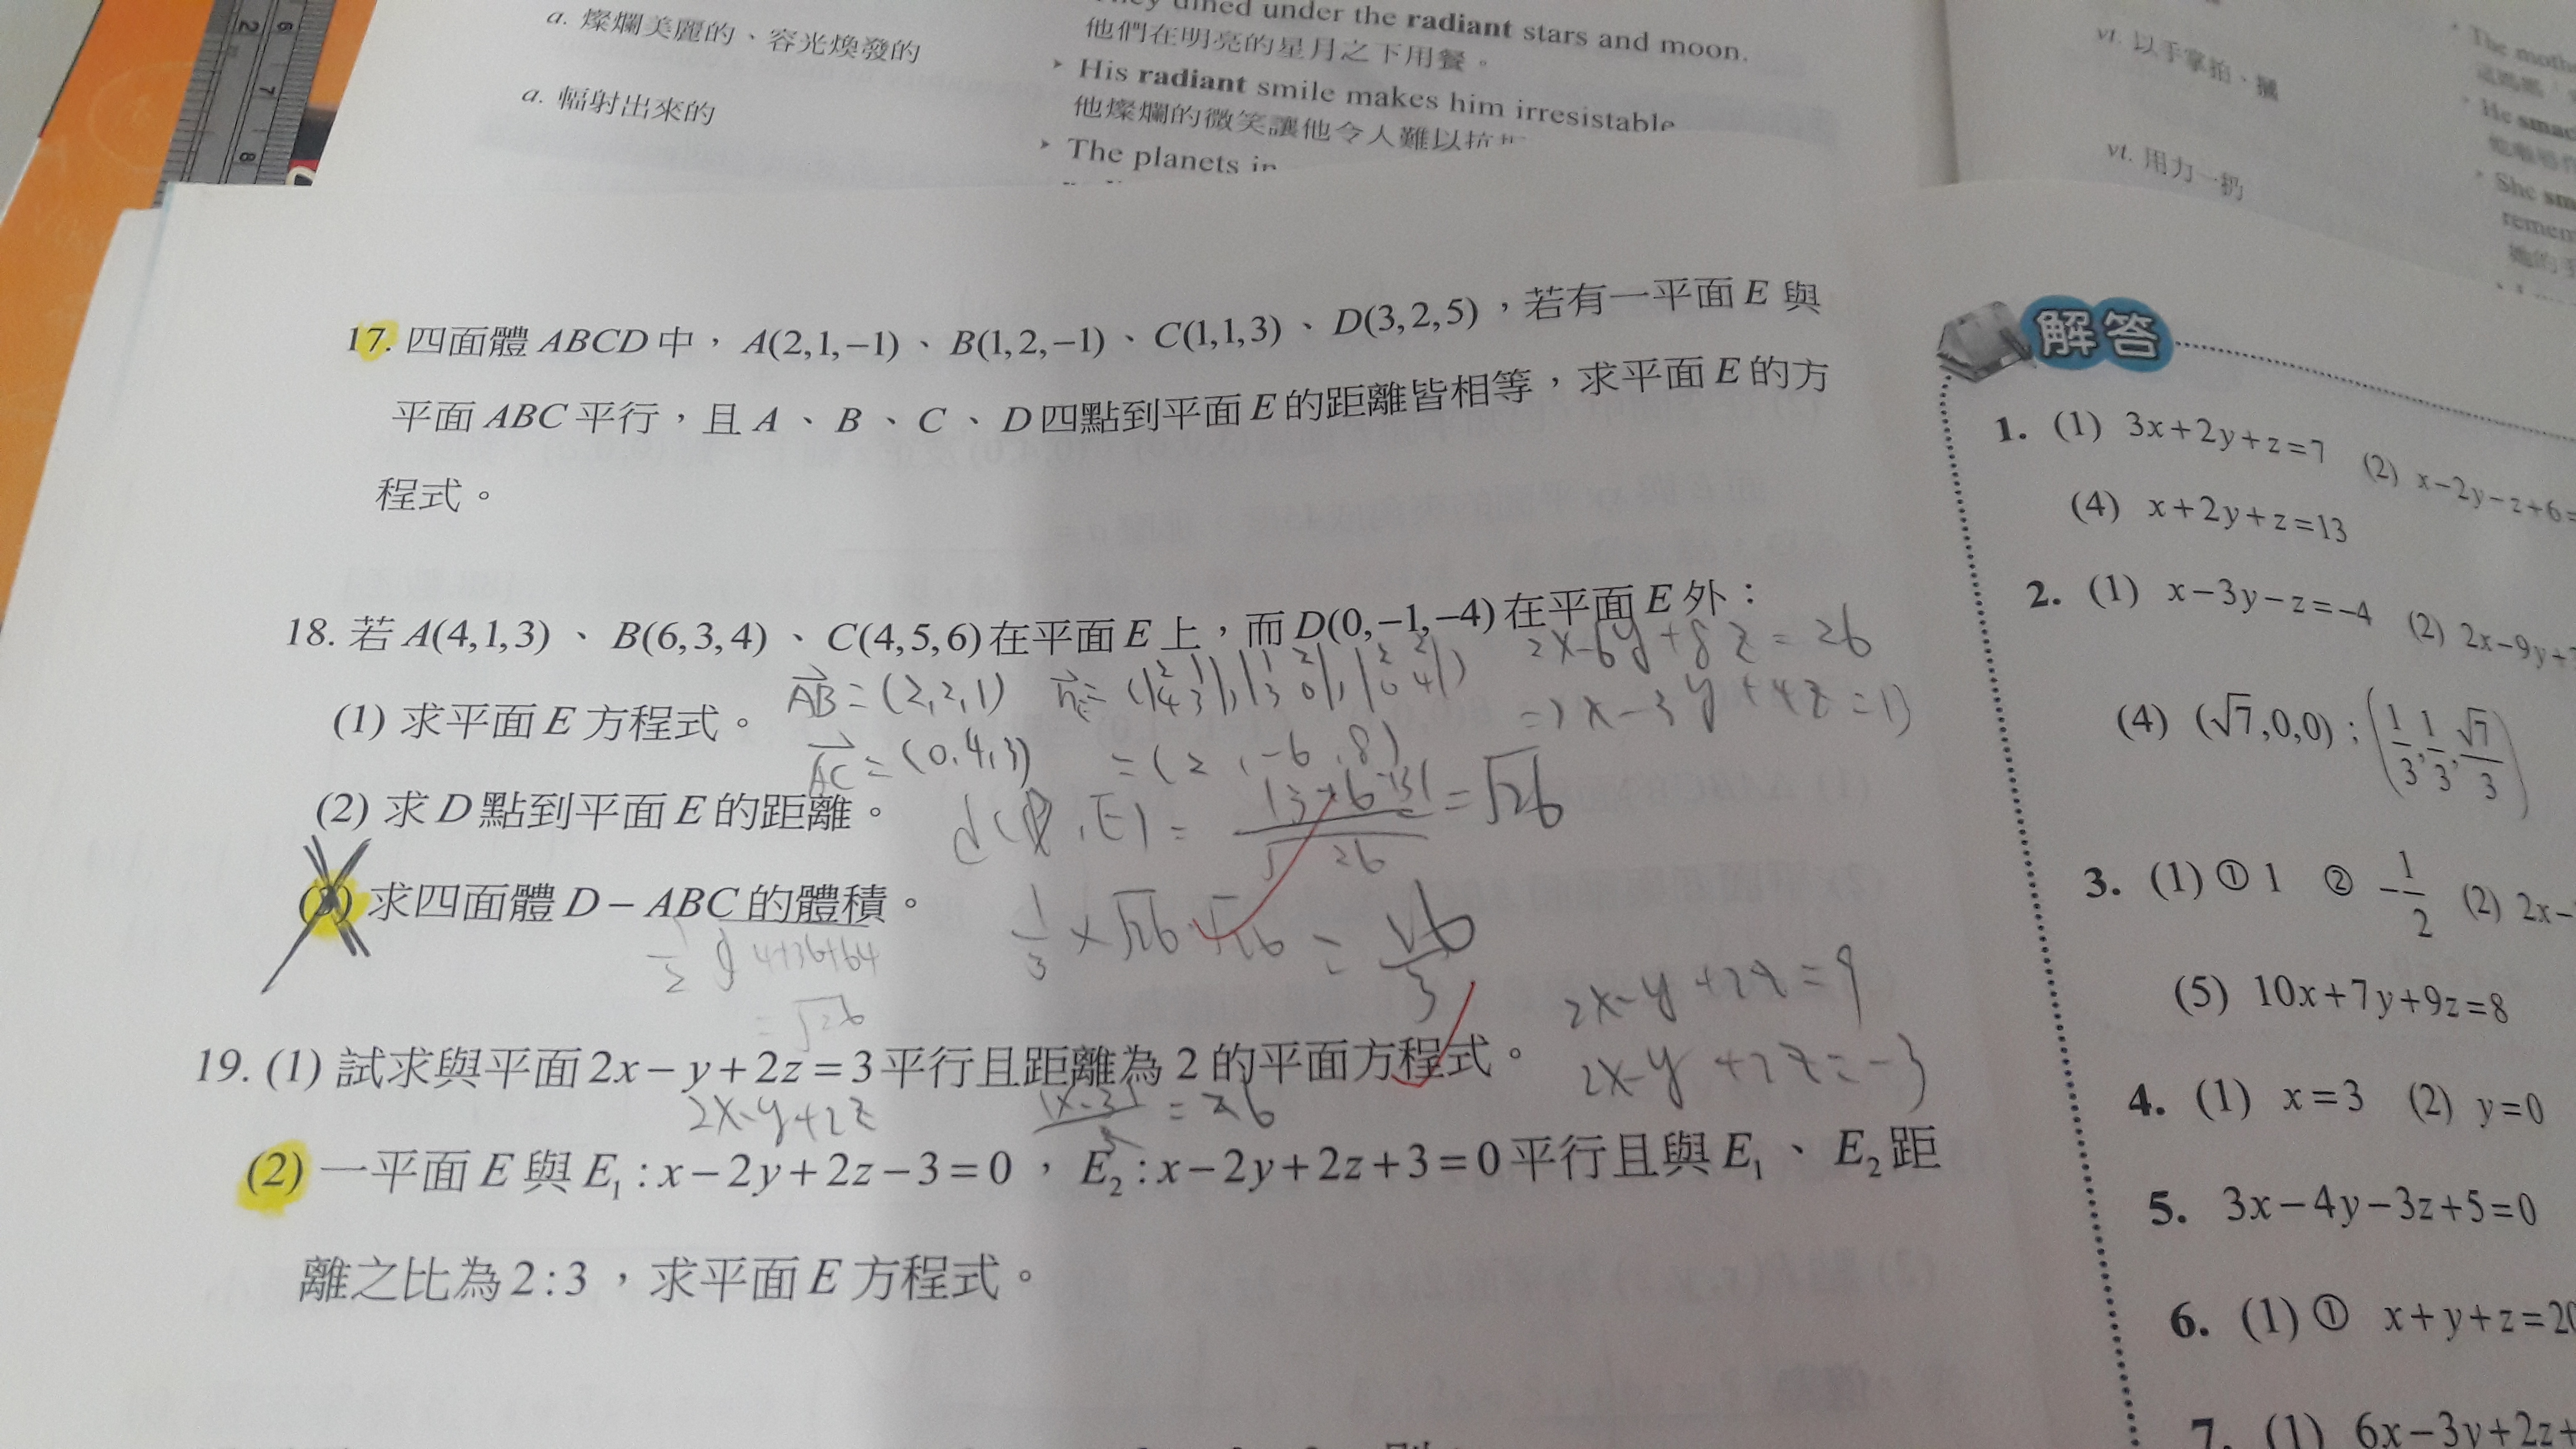 a. 燦爛美麗的、容光煥發的
a. 輻射出來的
dined under the radiant stars and moon.
他們在明亮的星月之下用餐。
His radiant smile makes him irresistable
他燦爛的微笑讓他令人難以抗
The planets in
vt. 以手拿拍、摑
vt. 用力一扔
The moth
He smac
She sm
remem
2
6
7
8
17. 四面體 ABCD 中，A(2,1,−1)、B(1,2,−1)、C(1,1,3)、D(3,2,5)，若有一平面 E 與
平面 ABC 平行，且 A、B、C、D 四點到平面 E 的距離皆相等，求平面 E 的方
程式。
18. 若 A(4,1,3)、B(6,3,4)、C(4,5,6) 在平面 E 上，而 D(0,−1,−4) 在平面 E 外：
2x-6y+8z=26
(1) 求平面 E 方程式。
AB=(2,2,1) n=(|2 1 4 3|,|1 2 3 0|,|2 2 0 4|)
⇒x-3y+4z=13
AC=(0,4,3) =(2,-6,8)
(2) 求 D 點到平面 E 的距離。
d(D,E)= |3-16-13| / √26 =√26
(3) 求四面體 D−ABC 的體積。
1/3 ×√26 ×√26 = 26/3
1/2 √4+36+64
=√26
2x-y+2z=9
19. (1) 試求與平面 2x−y+2z=3 平行且距離為 2 的平面方程式。
2x-y+2z=-3
2x-y+2z |x-3| / 3 = 6
(2) 一平面 E 與 E₁:x−2y+2z−3=0，E₂:x−2y+2z+3=0 平行且與 E₁、E₂ 距
離之比為 2:3，求平面 E 方程式。
解答
1. (1) 3x+2y+z=7 (2) x−2y−z+6=
(4) x+2y+z=13
2. (1) x−3y−z=−4 (2) 2x−9y+
(4) (√7,0,0)；(1/3,1/3,√7/3)
3. (1) ① 1 ② −1/2 (2) 2x−
(5) 10x+7y+9z=8
4. (1) x=3 (2) y=0
5. 3x−4y−3z+5=0
6. (1) ① x+y+z=20
7. (1) 6x−3y+2z+